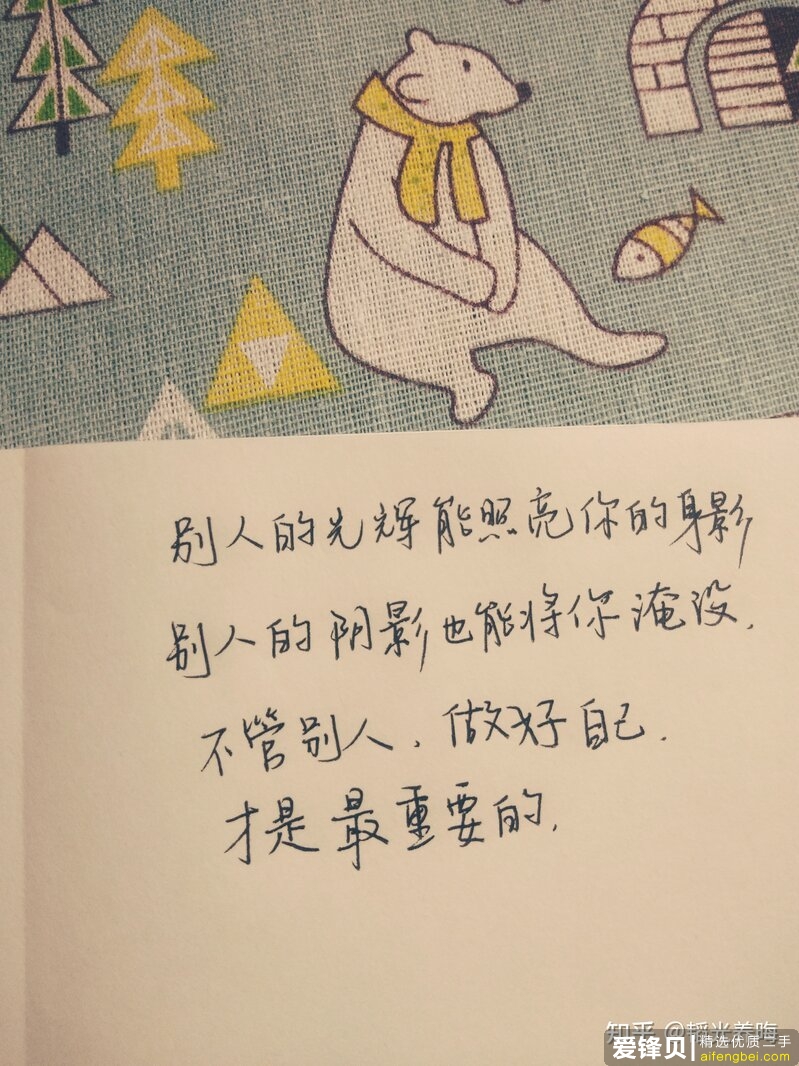 别人的光辉能照亮你的身影
别人的阴影也能将你淹没.
不管别人.做好自己.
才是最重要的.
知乎 @韬光养晦
爱锋贝 精选优质二手
aifengbei.com